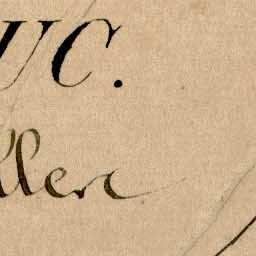 UC.
ller